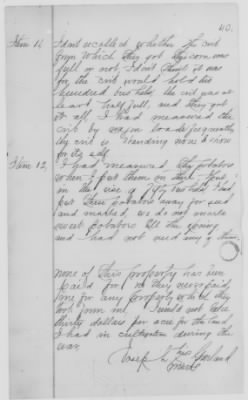 40.
Item 11 I don't recollect whether the crib
from which they got the corn was
full or not, I don't think it was
for the crib would hold six
hundred bushels, the crib was at
least half full, and they got
it all, I had measured the
crib by wagon loads frequently
the crib is standing now to show
for its self.
Item 12, I had measured the potatoes
when I put them in
in the vine a fifty bushels I had
put these potatoes away for seed
and market, we do not market
sweet potatoes till the spring
and I had not used any of them.
None of this property has been
paid for no they never paid
me for any property which they
got from me, I would not take
thirty dollars per acre for the land
I had in cultivation during the
war.
his
mark